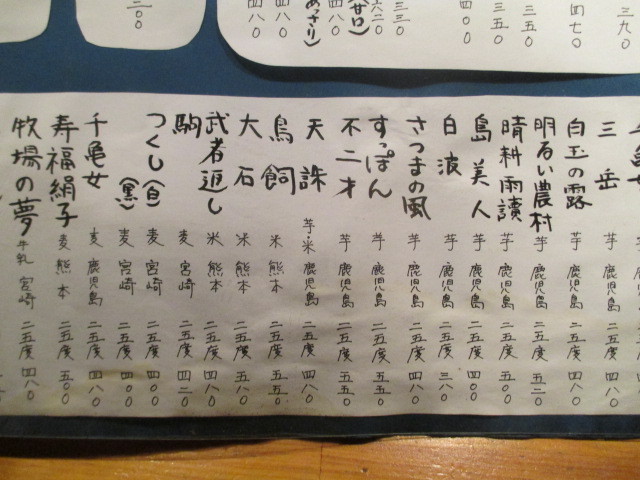 三岳 芋
白玉の露 芋 鹿児島 二五度 四八〇
明るい農村 芋 鹿児島 二五度 五二〇
晴耕雨讀 芋 鹿児島 二五度 五〇〇
島美人 芋 鹿児島 二五度 四〇〇
白波 芋 鹿児島 二五度 三八〇
さつまの風 芋 鹿児島 二五度 四八〇
すっぽん 芋 鹿児島 二五度 五五〇
不二才 芋 鹿児島 二五度 五五〇
天誅 芋・米 鹿児島 二五度 四八〇
鳥飼 米 熊本 二五度 五五〇
大石 米 熊本 二五度 五八〇
武者返し 米 熊本 二五度 四八〇
駒 麦 宮崎 二五度 四二〇
つくし(白) 麦 宮崎 二五度 四〇〇
(黒) 麦 宮崎 二五度 四〇〇
千亀女 麦 鹿児島 二五度 四八〇
寿福絹子 麦 熊本 二五度 五〇〇
牧場の夢 牛乳 宮崎 二五度 四八〇